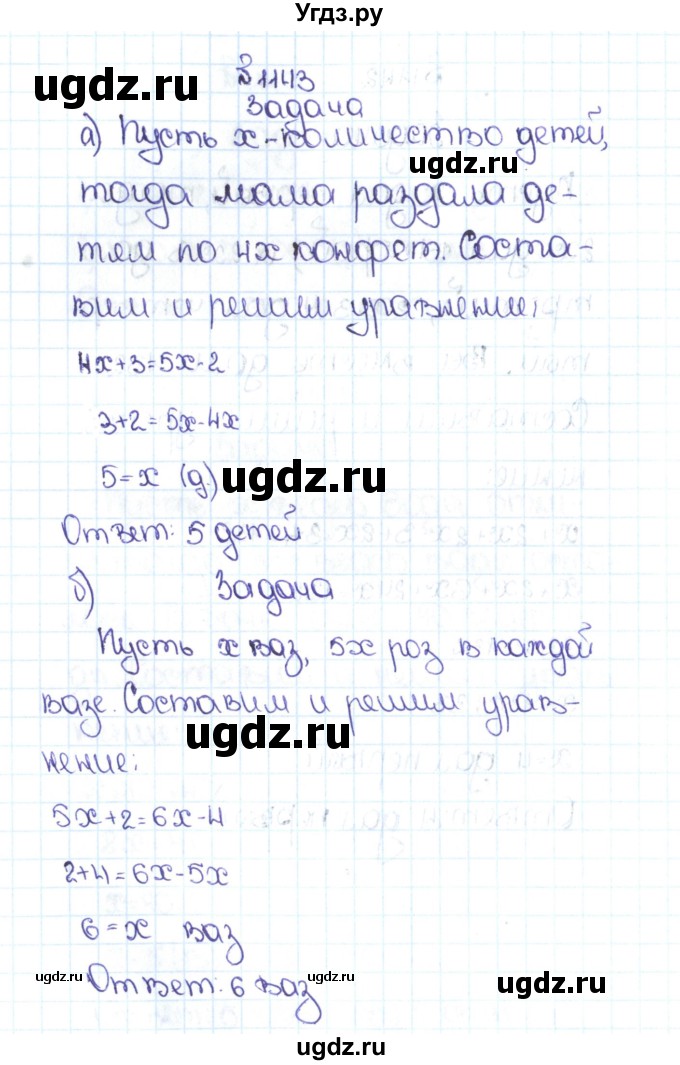 Угдз.ру
№1143
ugdz.ru
Задача
а) Пусть х-количество детей,
ugdz.ru
тогда мама раздала де-
тям по 4х конфет. Соста-
вим и решим уравнение:
4х+3=5х-2
3+2=5х-4х
5=х (д.)
ugdz.ru
Ответ: 5 детей
б) Задача
Пусть х ваз, 5х роз в каждой
вазе. Составим и решим урав-
ugdz.ru
нение:
5х+2=6х-4
2+4=6х-5х
6=х ваз
ugdz.ru ugdz.ru ugdz.ru
Ответ: 6 ваз
ugdz.ru